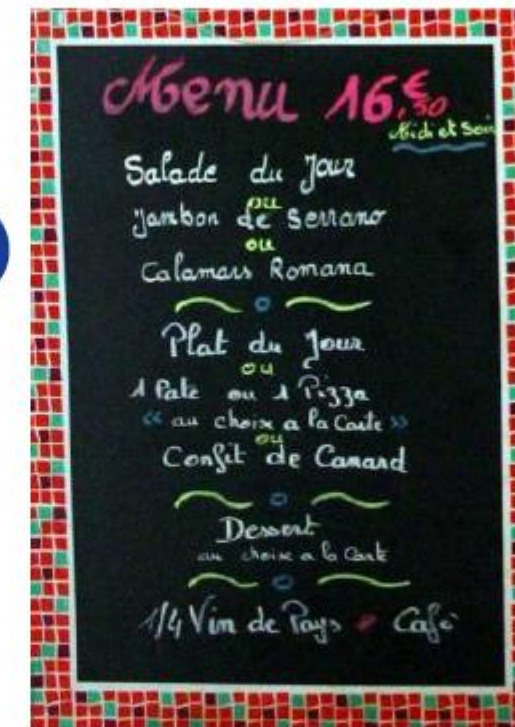 Menu 16€,50
Midi et Soir
Salade du Jour
ou
Jambon de Serrano
ou
Calamars Romana
Plat du Jour
ou
1 Pate ou 1 Pizza
« au choix a la Carte »
ou
Confit de Canard
Dessert
au choix a la Carte
1/4 Vin de Pays • Café